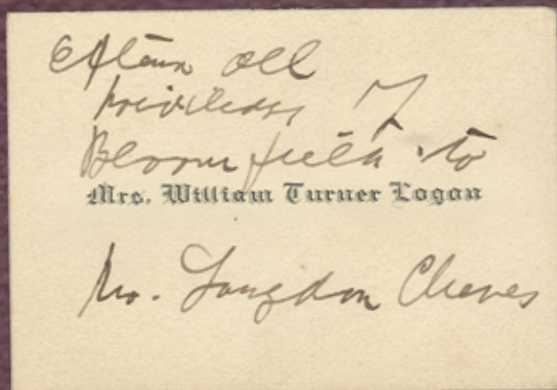 all
privileges of
Bloomfield to
Mrs. William Turner Logan
Mr. Langdon Cheves